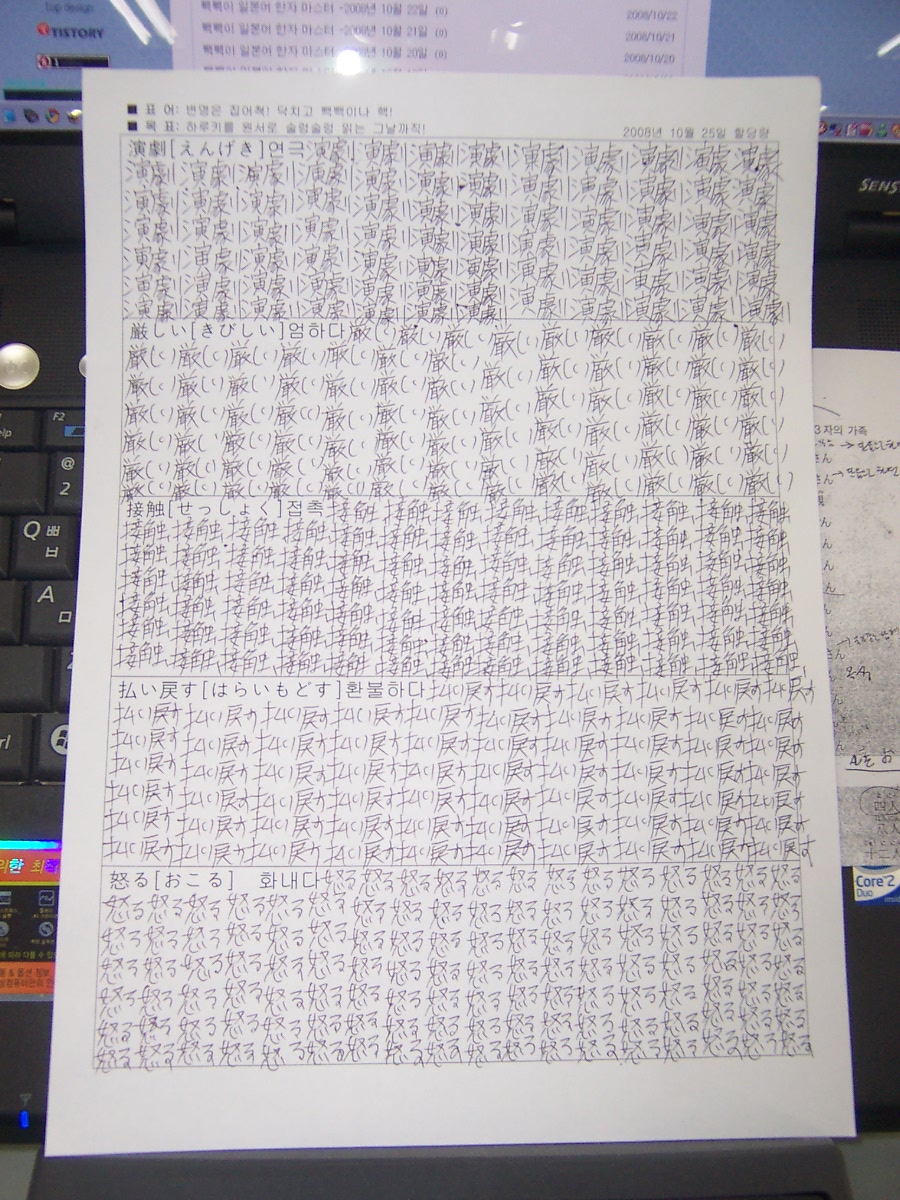 TISTORY
빽빽이 일본어 한자 마스터 -2008년 10월 22일 (0) 2008/10/22
빽빽이 일본어 한자 마스터 -2008년 10월 21일 (0) 2008/10/21
빽빽이 일본어 한자 마스터 -2008년 10월 20일 (0) 2008/10/20
■ 표 어: 변명은 집어쳐! 닥치고 빽빽이나 핵!
■ 목 표: 하루키를 원서로 술렁술렁 읽는 그날까지!
2008년 10월 25일 할당량
演劇[えんげき]연극 演劇 演劇 演劇 演劇 演劇 演劇 演劇 演劇 演劇
演劇 演劇 演劇 演劇 演劇 演劇 演劇 演劇 演劇 演劇 演劇 演劇
演劇 演劇 演劇 演劇 演劇 演劇 演劇 演劇 演劇 演劇 演劇 演劇
演劇 演劇 演劇 演劇 演劇 演劇 演劇 演劇 演劇 演劇 演劇 演劇
演劇 演劇 演劇 演劇 演劇 演劇 演劇 演劇 演劇 演劇 演劇 演劇
演劇 演劇 演劇 演劇 演劇 演劇 演劇 演劇 演劇 演劇 演劇 演劇
演劇 演劇 演劇 演劇 演劇 演劇 演劇 演劇 演劇 演劇 演劇 演劇
厳しい[きびしい]엄하다 厳しい 厳しい 厳しい 厳しい 厳しい 厳しい 厳しい 厳しい 厳しい
厳しい 厳しい 厳しい 厳しい 厳しい 厳しい 厳しい 厳しい 厳しい 厳しい 厳しい 厳しい 厳しい
厳しい 厳しい 厳しい 厳しい 厳しい 厳しい 厳しい 厳しい 厳しい 厳しい 厳しい 厳しい 厳しい
厳しい 厳しい 厳しい 厳しい 厳しい 厳しい 厳しい 厳しい 厳しい 厳しい 厳しい 厳しい 厳しい
厳しい 厳しい 厳しい 厳しい 厳しい 厳しい 厳しい 厳しい 厳しい 厳しい 厳しい 厳しい 厳しい
厳しい 厳しい 厳しい 厳しい 厳しい 厳しい 厳しい 厳しい 厳しい 厳しい 厳しい 厳しい 厳しい
厳しい 厳しい 厳しい 厳しい 厳しい 厳しい 厳しい 厳しい 厳しい 厳しい 厳しい 厳しい 厳しい
接触[せっしょく]접촉 接触 接触 接触 接触 接触 接触 接触 接触 接触
接触 接触 接触 接触 接触 接触 接触 接触 接触 接触 接触 接触 接触
接触 接触 接触 接触 接触 接触 接触 接触 接触 接触 接触 接触 接触
接触 接触 接触 接触 接触 接触 接触 接触 接触 接触 接触 接触 接触
接触 接触 接触 接触 接触 接触 接触 接触 接触 接触 接触 接触 接触
接触 接触 接触 接触 接触 接触 接触 接触 接触 接触 接触 接触 接触
接触 接触 接触 接触 接触 接触 接触 接触 接触 接触 接触 接触 接触
払い戻す[はらいもどす]환불하다 払い戻す 払い戻す 払い戻す 払い戻す 払い戻す 払い戻す
払い戻す 払い戻す 払い戻す 払い戻す 払い戻す 払い戻す 払い戻す 払い戻す 払い戻す 払い戻す
払い戻す 払い戻す 払い戻す 払い戻す 払い戻す 払い戻す 払い戻す 払い戻す 払い戻す 払い戻す
払い戻す 払い戻す 払い戻す 払い戻す 払い戻す 払い戻す 払い戻す 払い戻す 払い戻す 払い戻す
払い戻す 払い戻す 払い戻す 払い戻す 払い戻す 払い戻す 払い戻す 払い戻す 払い戻す 払い戻す
払い戻す 払い戻す 払い戻す 払い戻す 払い戻す 払い戻す 払い戻す 払い戻す 払い戻す 払い戻す
払い戻す 払い戻す 払い戻す 払い戻す 払い戻す 払い戻す 払い戻す 払い戻す 払い戻す 払い戻す
怒る[おこる] 화내다 怒る 怒る 怒る 怒る 怒る 怒る 怒る 怒る 怒る 怒る 怒る 怒る
怒る 怒る 怒る 怒る 怒る 怒る 怒る 怒る 怒る 怒る 怒る 怒る 怒る 怒る 怒る 怒る 怒る 怒る
怒る 怒る 怒る 怒る 怒る 怒る 怒る 怒る 怒る 怒る 怒る 怒る 怒る 怒る 怒る 怒る 怒る 怒る
怒る 怒る 怒る 怒る 怒る 怒る 怒る 怒る 怒る 怒る 怒る 怒る 怒る 怒る 怒る 怒る 怒る 怒る
怒る 怒る 怒る 怒る 怒る 怒る 怒る 怒る 怒る 怒る 怒る 怒る 怒る 怒る 怒る 怒る 怒る 怒る
怒る 怒る 怒る 怒る 怒る 怒る 怒る 怒る 怒る 怒る 怒る 怒る 怒る 怒る 怒る 怒る 怒る 怒る
怒る 怒る 怒る 怒る 怒る 怒る 怒る 怒る 怒る 怒る 怒る 怒る 怒る 怒る 怒る 怒る 怒る 怒る
SENS
F2
@
2
Q ㅃ
ㅂ
A
ㅁ
Core 2
Duo